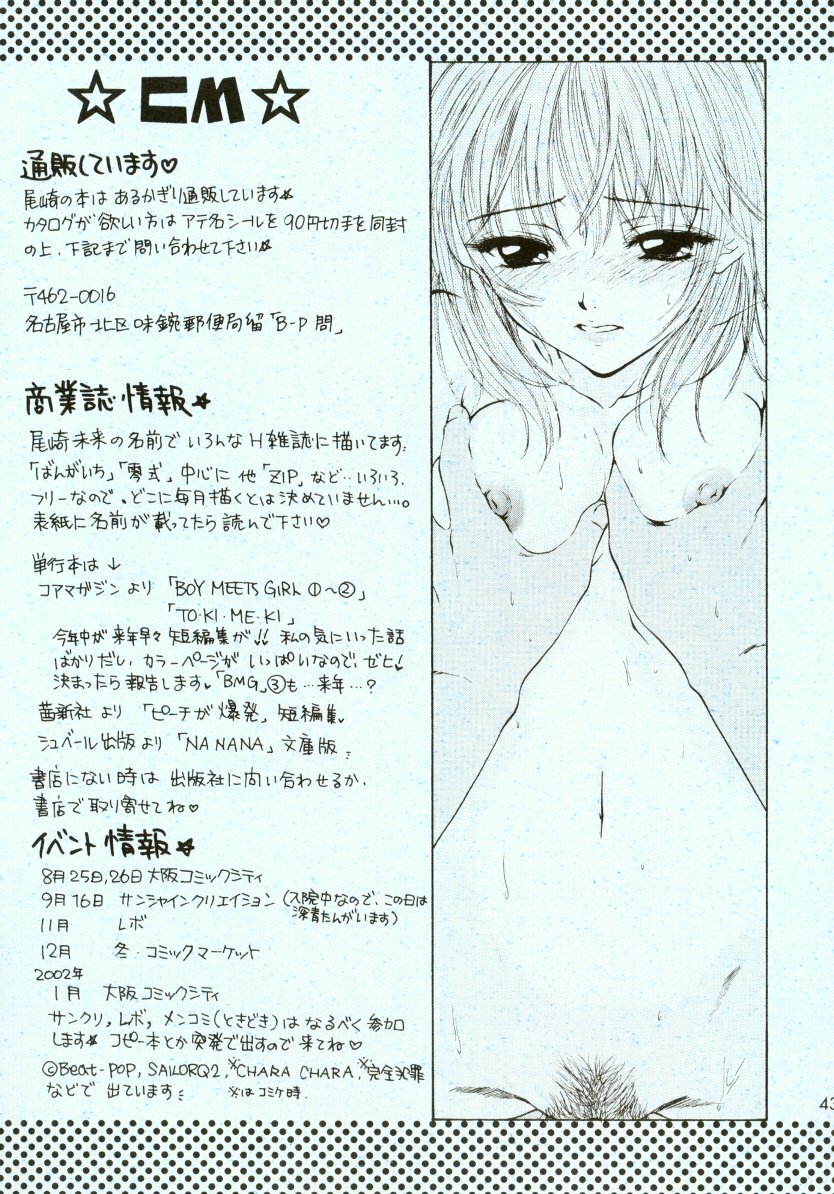 ☆CM☆
通販しています♡
尾崎の本は あるかぎり通販しています★
カタログが欲しい方は アテ名シールを90円切手を同封
の上、下記まで問い合わせて下さい★
〒462-0016
名古屋市北区味鋺郵便局留「B-P問」
商業誌情報★
尾崎未来の名前で いろんなH雑誌に描いてます。
「ばんがいち」「零式」中心に 他「ZIP」など…いろいろ。
フリーなので。どこに毎月描くとは決めていません…。
表紙に名前が載ってたら読んで下さい♡
単行本は↓
コアマガジンより 「BOY MEETS GIRL ①〜②」
「TO・KI・ME・KI」
今年中か来年早々 短編集が!! 私の気にいった話
ばかりだし、カラーページが いっぱいなので、ゼヒ!
決まったら報告します。「BMG」③も…来年…?
茜新社より 「ピーチが爆発」短編集。
シュベール出版より 「NANANA」文庫版
書店にない時は 出版社に問い合わせるか、
書店で取り寄せてね♡
イベント情報★
8月25日,26日 大阪コミックシティ
9月16日 サンシャインクリエイション (入院中なので、この日は
深青たんがいます)
11月 レボ
12月 冬・コミックマーケット
2002年
1月 大阪コミックシティ
サンクリ, レボ, メンコミ(ときどき)は なるべく参加
します★ コピー本とか突発で出すので来てね♡
©Beat-POP, SAILORQ2, ※CHARA CHARA, ※完全犯罪
などで 出ています ※はコミケ時.
43